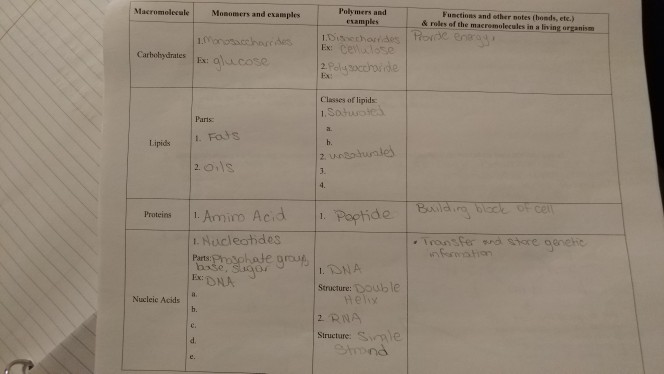 Macromolecule
Monomers and examples
Polymers and
examples
Functions and other notes (bonds, etc.)
& roles of the macromolecules in a living organism
Carbohydrates
1. Monosaccharides
Ex: glucose
1. Disaccharides
Ex: Cellulose
2. Polysaccharide
Ex:
Provide energy
Lipids
Parts:
1. Fats
2. oils
Classes of lipids:
1. Saturated
a.
b.
2. unsaturated
3.
4.
Proteins
1. Amino Acid
1. Peptide
Building block of cell
Nucleic Acids
1. Nucleotides
Parts: Phosphate group,
base, sugar
Ex: DNA
a.
b.
c.
d.
e.
1. DNA
Structure: Double
Helix
2. RNA
Structure:
Strand
• Transfer and store genetic
information